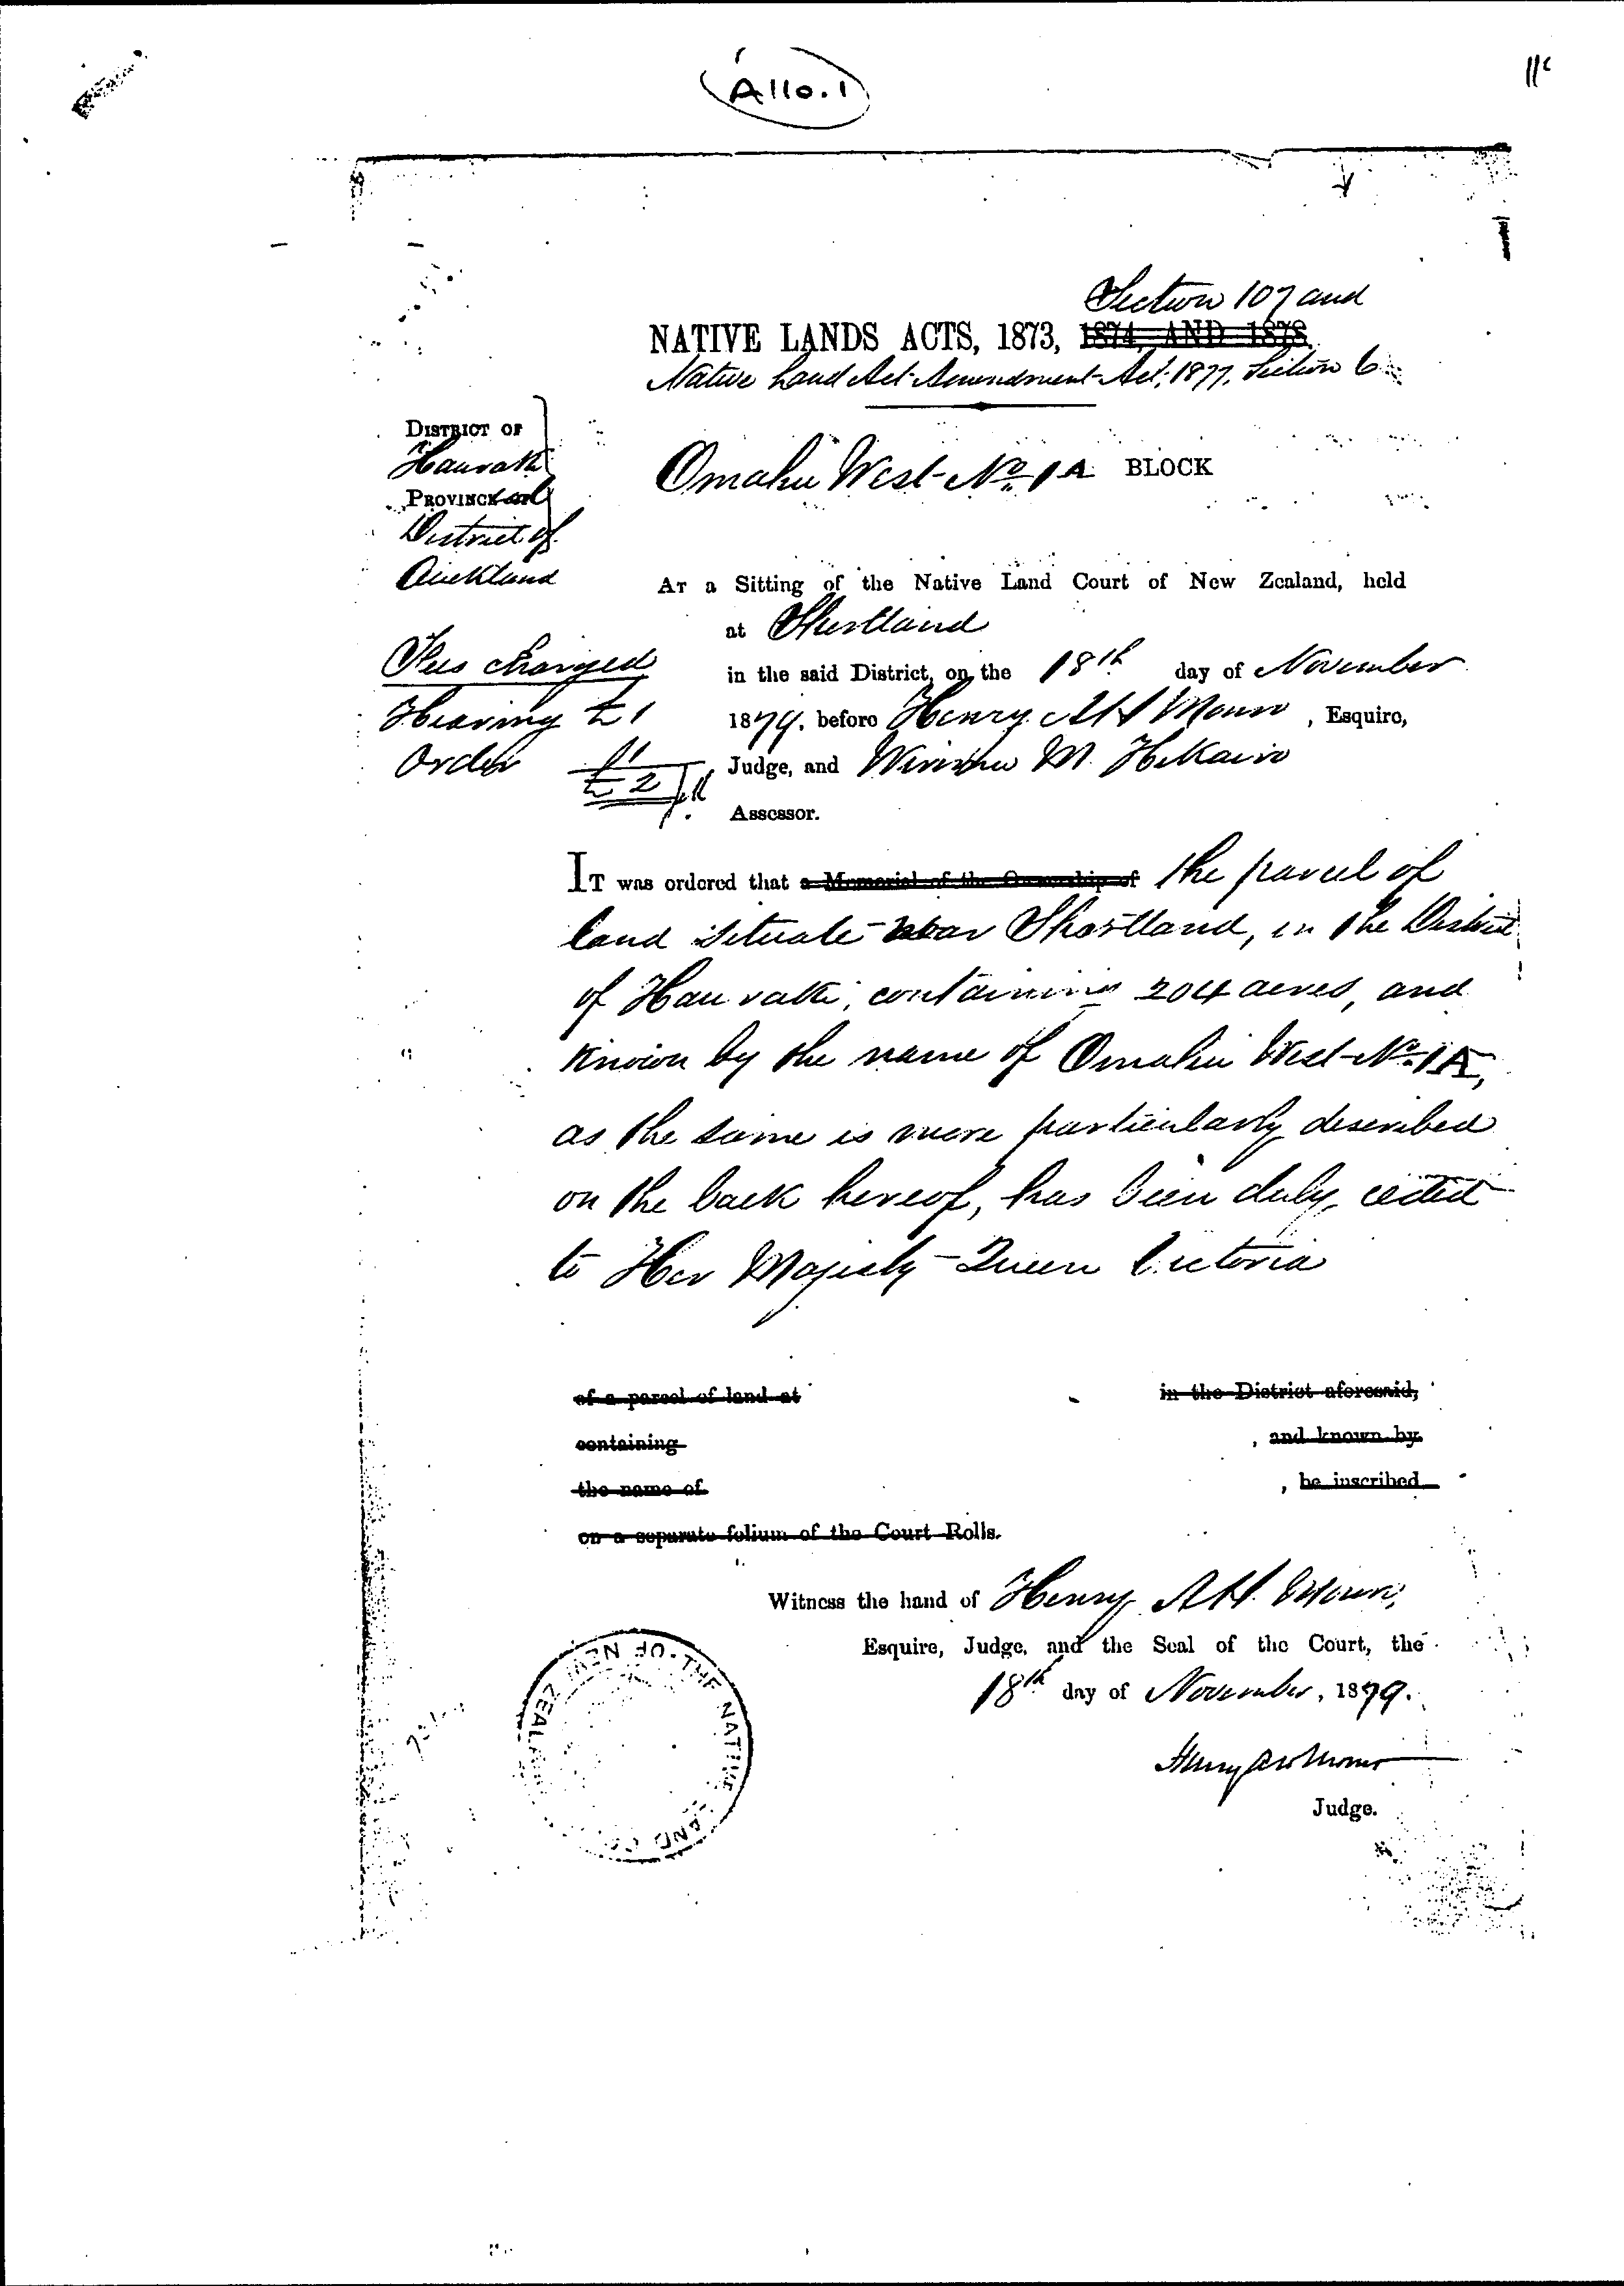 A110.1
Section 107 and
NATIVE LANDS ACTS, 1873, 1874, AND 1878.
Native Land Act Amendment Act, 1877, Section 6
DISTRICT OF
Hauraki
PROVINCE of
District of
Auckland
Omahu West No. 1A BLOCK
AT a Sitting of the Native Land Court of New Zealand, held
at Shortland
Fees charged
in the said District, on the 18th day of November
Hearing £1
1879, before Henry A H Monro, Esquire,
Order £1
Judge, and M.
£2
Assessor.
IT was ordered that a Memorial of the Ownership of the parcel of
land situate near Shortland, in the District
of Hauraki, containing 204 acres, and
known by the name of Omahu West No. 1A,
as the same is more particularly described
on the back hereof, has been duly ceded
to Her Majesty Queen Victoria
of a parcel of land at in the District aforesaid,
containing , and known by
the name of , be inscribed
on a separate folium of the Court Rolls.
Witness the hand of Henry A H. Monro,
Esquire, Judge, and the Seal of the Court, the
18th day of November, 1879.
Henry A H Monro
Judge.
OF THE NATIVE LAND OF NEW ZEALAND